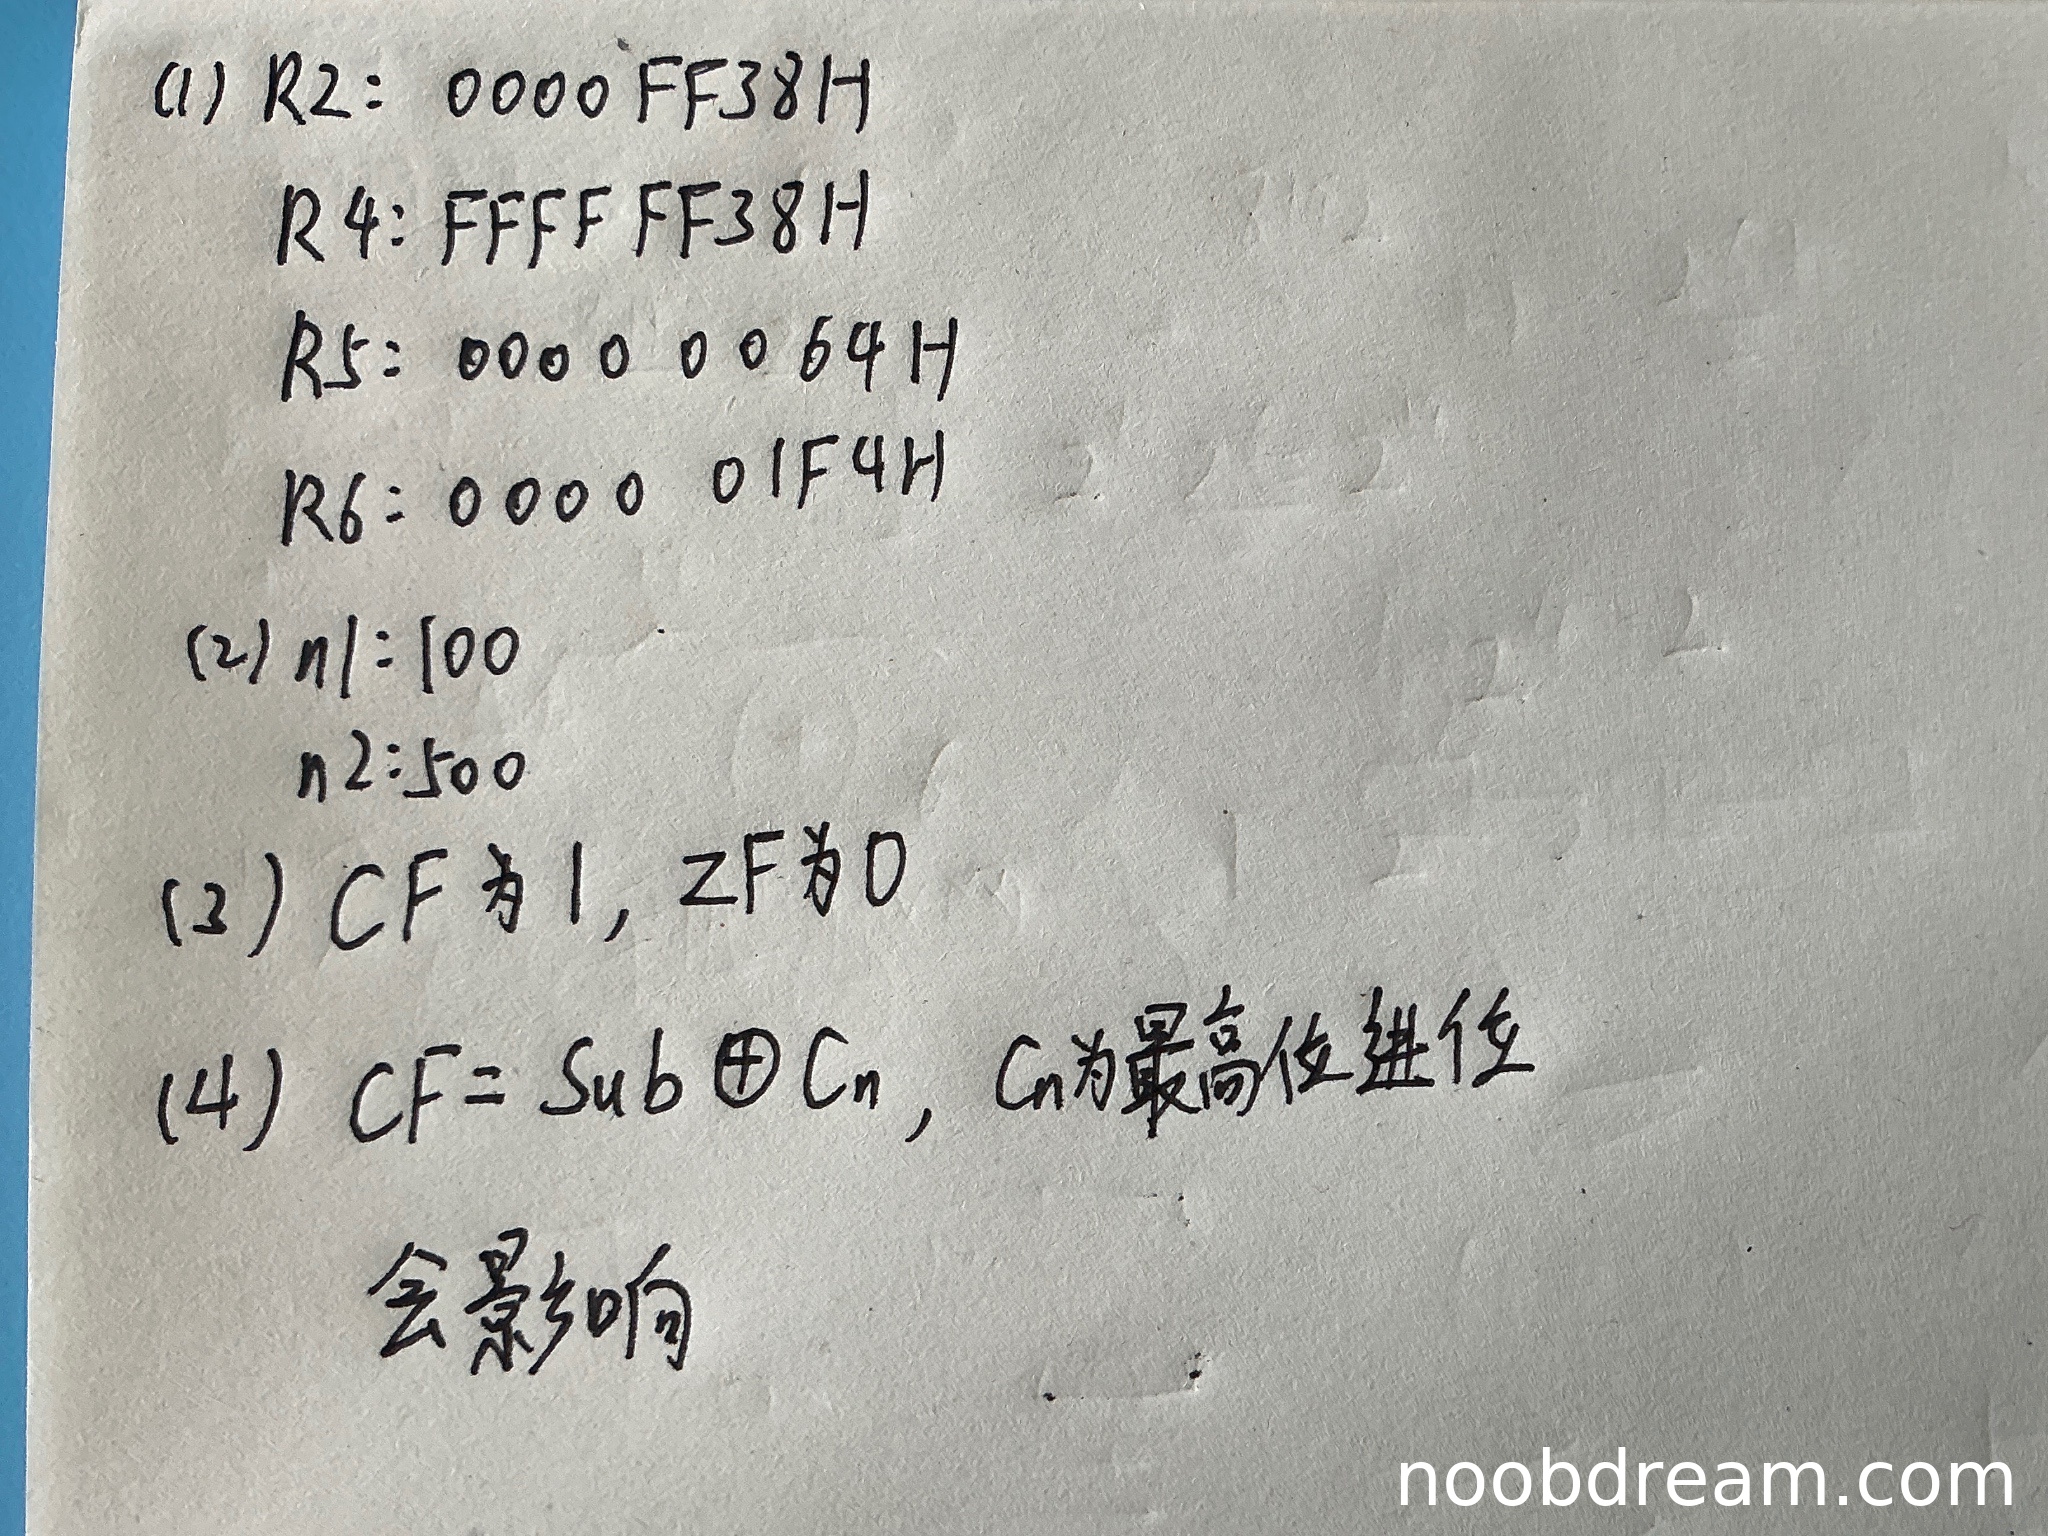 (1) R2: 0000FF38H
R4: FFFF FF38H
R5: 0000 0064H
R6: 0000 01F4H
(2) n1:100
n2:500
(3) CF为1, ZF为0
(4) CF= Sub⊕Cn, Cn为最高位进位
会影响
noobdream.com